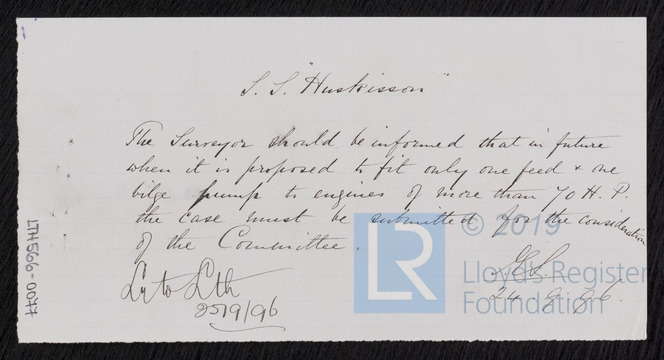 S. S. "Huskisson"
The Surveyor should be informed that in future
when it is proposed to fit only one feed & one
bilge pump to engines of more than 70 H. P.
the case must be submitted for the consideration
of the Committee.
24.9.96.
Lr to Lth
25/9/96
LTH566-0047
© 2019
LR
Lloyd's Register
Foundation